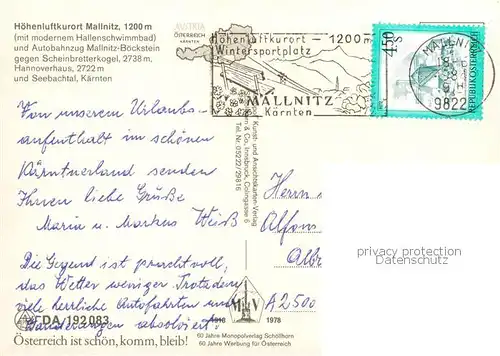 Höhenluftkurort Mallnitz, 1200 m
(mit modernem Hallenschwimmbad)
und Autobahnzug Mallnitz-Böckstein
gegen Scheinbretterkogel, 2738 m,
Hannoverhaus, 2722 m
und Seebachtal, Kärnten
AUSTRIA
ÖSTERREICH
KÄRNTEN
Höhenluftkurort - 1200 m
Wintersportplatz
MALLNITZ
Kärnten
4.50
REPUBLIK ÖSTERREICH
MALLNITZ
9822
Von unserem Urlaubs-
aufenthalt im schönen
Kärntnerland senden
Ihnen liebe Grüße
Maria u. Markus Weiß
Die Gegend ist prachtvoll,
das Wetter weniger. Trotzdem
viele herrliche Autofahrten und
Wanderungen absolviert!
Kunst- und Ansichtskarten-Verlag
& Co., Innsbruck, Colingasse 6
Tel. Nr. 05222/29816
Herrn
Alfons
Alb
privacy protection
Datenschutz
A 2500
FDA/192083
MV
1918 1978
60 Jahre Monopolverlag Schöllhorn
60 Jahre Werbung für Österreich
Österreich ist schön, komm, bleib!